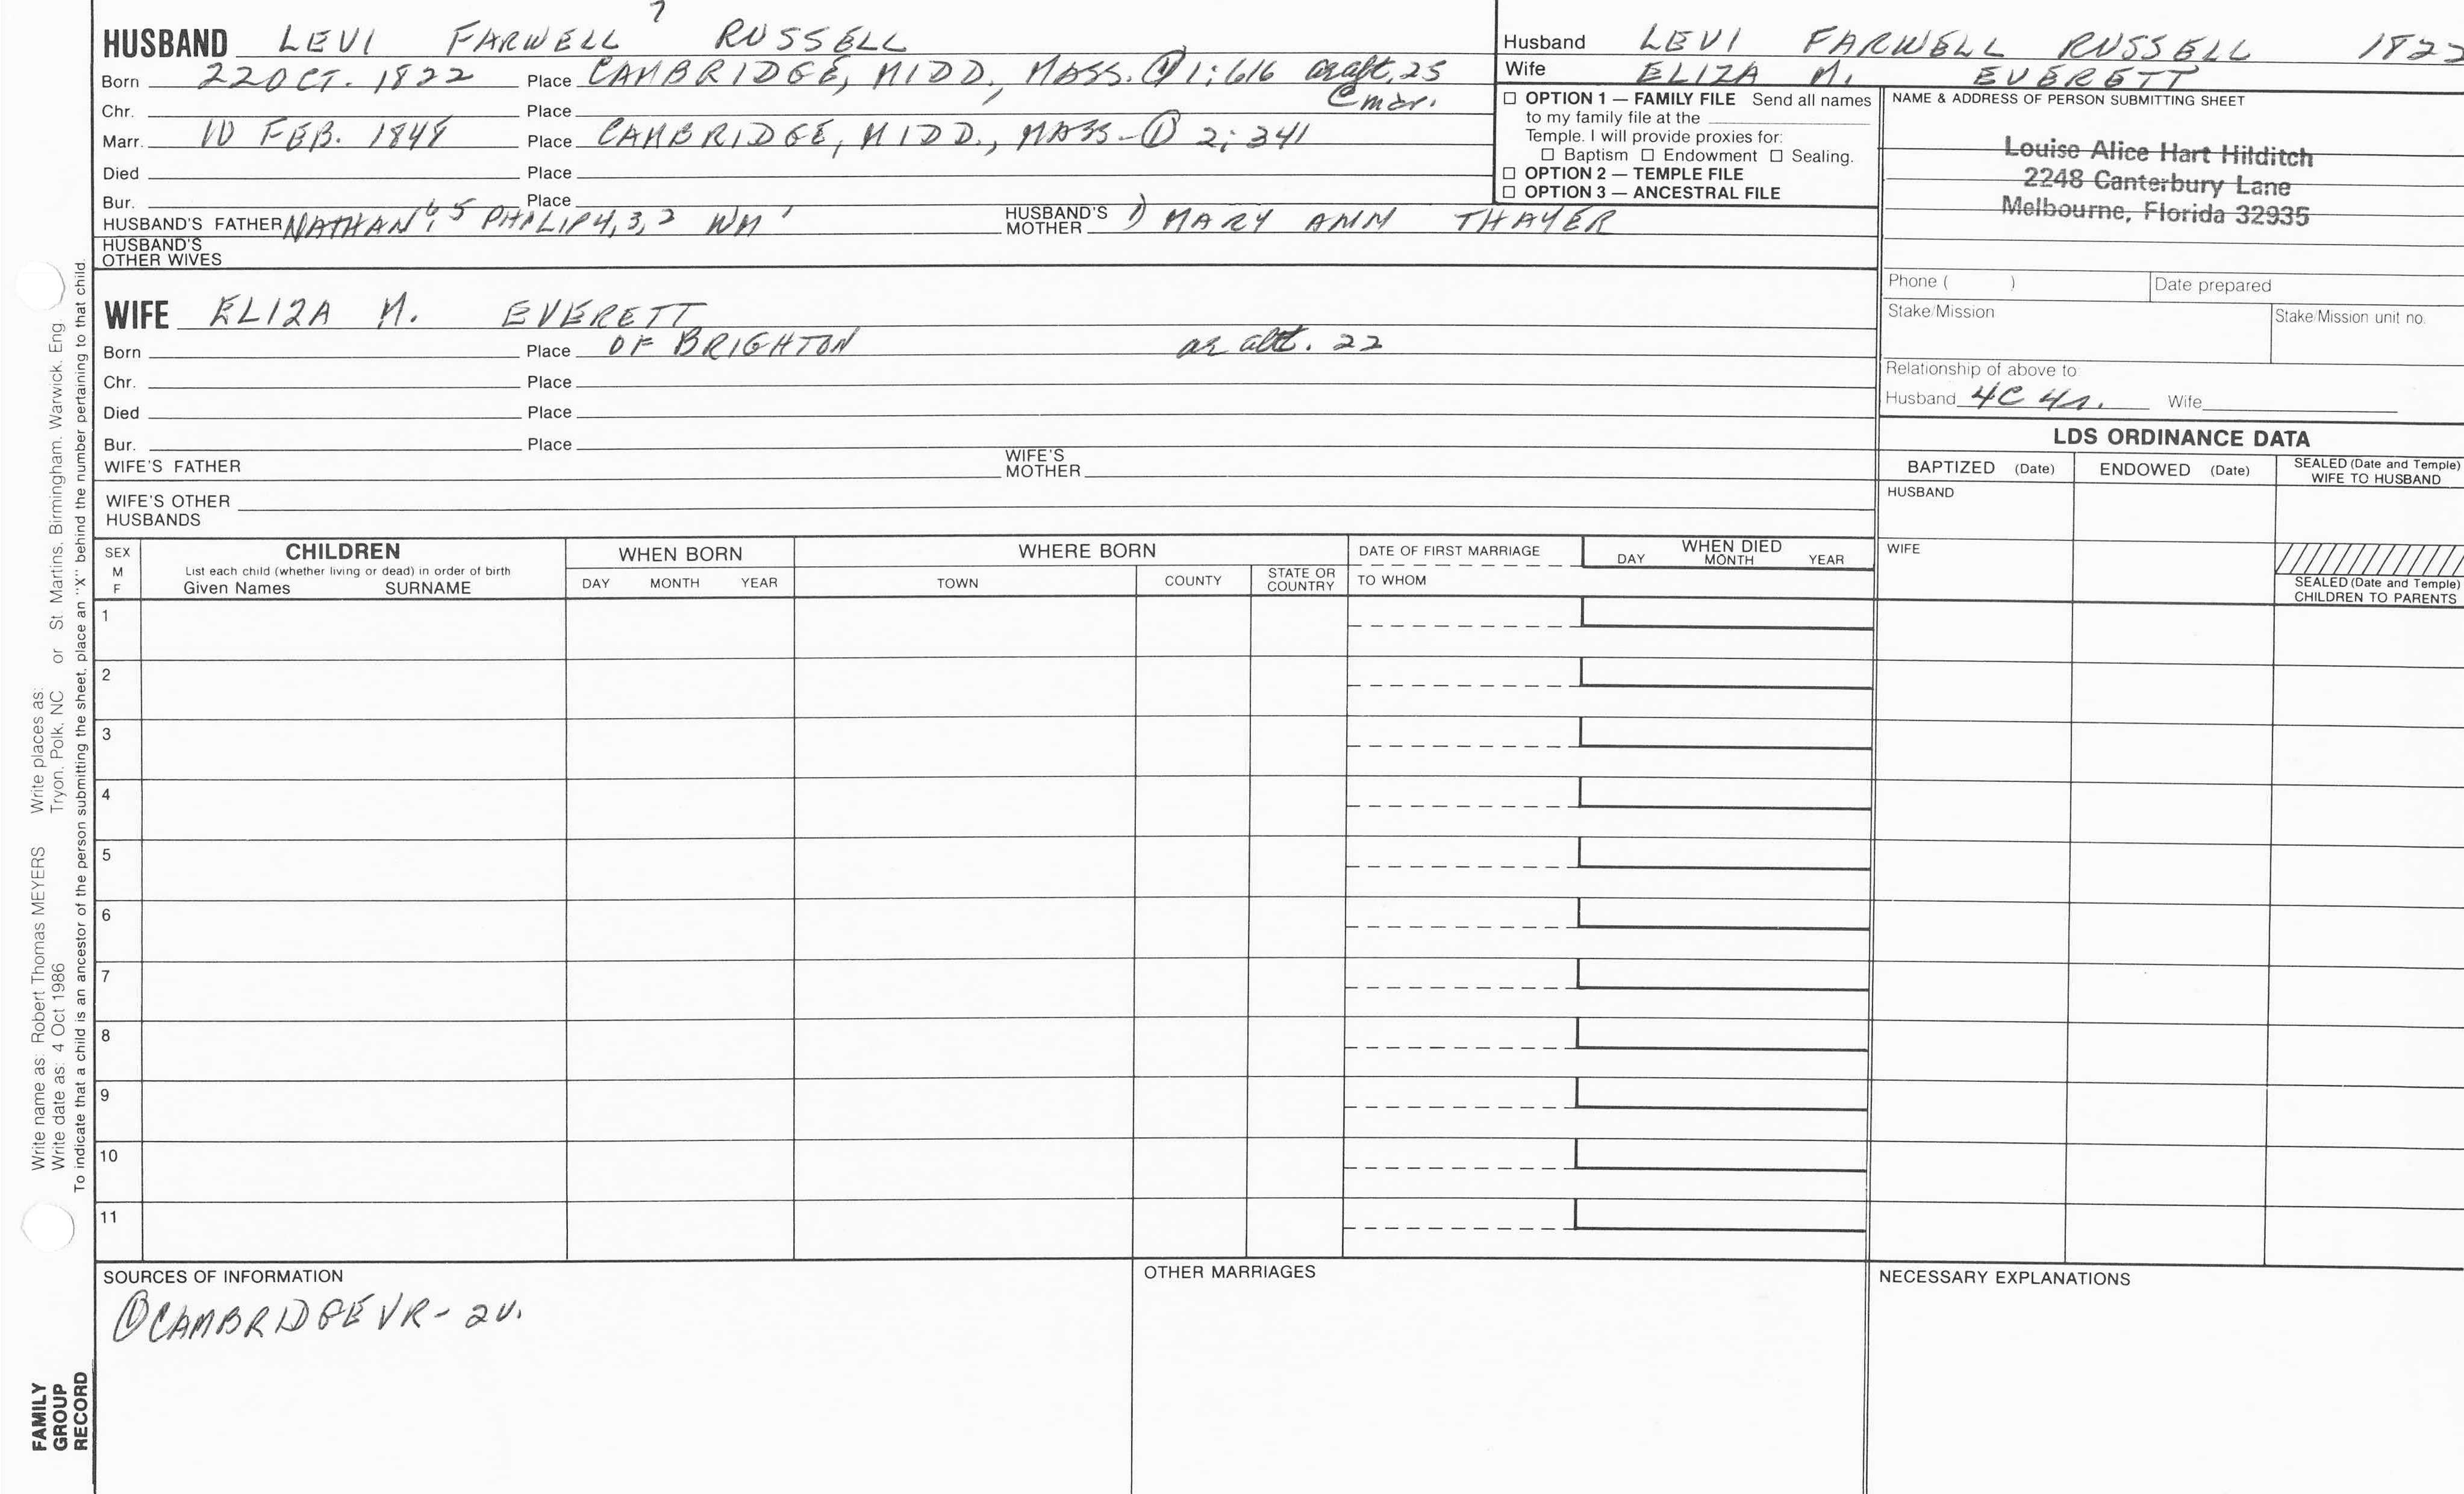 7
HUSBAND LEVI FARWELL RUSSELL
Born 22 OCT. 1822 Place CAMBRIDGE, MIDD., MASS. ① 1:616
25
@ mar.
Chr. Place
Marr. 10 FEB. 1848 Place CAMBRIDGE, MIDD., MASS - ① 2:341
Died Place
Bur. Place
HUSBAND'S FATHER NATHAN 6,5 PHILIP 4,3,2 WM 1 HUSBAND'S MOTHER 1) MARY ANN THAYER
HUSBAND'S OTHER WIVES
Husband LEVI FARWELL RUSSELL 1822
Wife ELIZA M. EVERETT
☐ OPTION 1 — FAMILY FILE Send all names
to my family file at the
Temple. I will provide proxies for:
☐ Baptism ☐ Endowment ☐ Sealing.
☐ OPTION 2 — TEMPLE FILE
☐ OPTION 3 — ANCESTRAL FILE
NAME & ADDRESS OF PERSON SUBMITTING SHEET
Louise Alice Hart Hilditch
2248 Canterbury Lane
Melbourne, Florida 32935
Phone ( ) Date prepared
Stake/Mission Stake/Mission unit no.
Relationship of above to
Husband 4C 4r. Wife
WIFE ELIZA M. EVERETT
Born Place OF BRIGHTON 22
Chr. Place
Died Place
Bur. Place
WIFE'S FATHER WIFE'S MOTHER
WIFE'S OTHER HUSBANDS
LDS ORDINANCE DATA
BAPTIZED (Date) ENDOWED (Date) SEALED (Date and Temple) WIFE TO HUSBAND
HUSBAND
WIFE
SEALED (Date and Temple) CHILDREN TO PARENTS
SEX M F
CHILDREN
List each child (whether living or dead) in order of birth
Given Names SURNAME
WHEN BORN
DAY MONTH YEAR
WHERE BORN
TOWN COUNTY STATE OR COUNTRY
DATE OF FIRST MARRIAGE
TO WHOM
WHEN DIED
DAY MONTH YEAR
1
2
3
4
5
6
7
8
9
10
11
SOURCES OF INFORMATION
① CAMBRIDGE VR - 2V.
OTHER MARRIAGES
NECESSARY EXPLANATIONS
Write name as: Robert Thomas MEYERS Write places as:
Write date as: 4 Oct 1986 Tryon, Polk, NC or St. Martins, Birmingham, Warwick, Eng
To indicate that a child is an ancestor of the person submitting the sheet, place an "X" behind the number pertaining to that child.
FAMILY
GROUP
RECORD